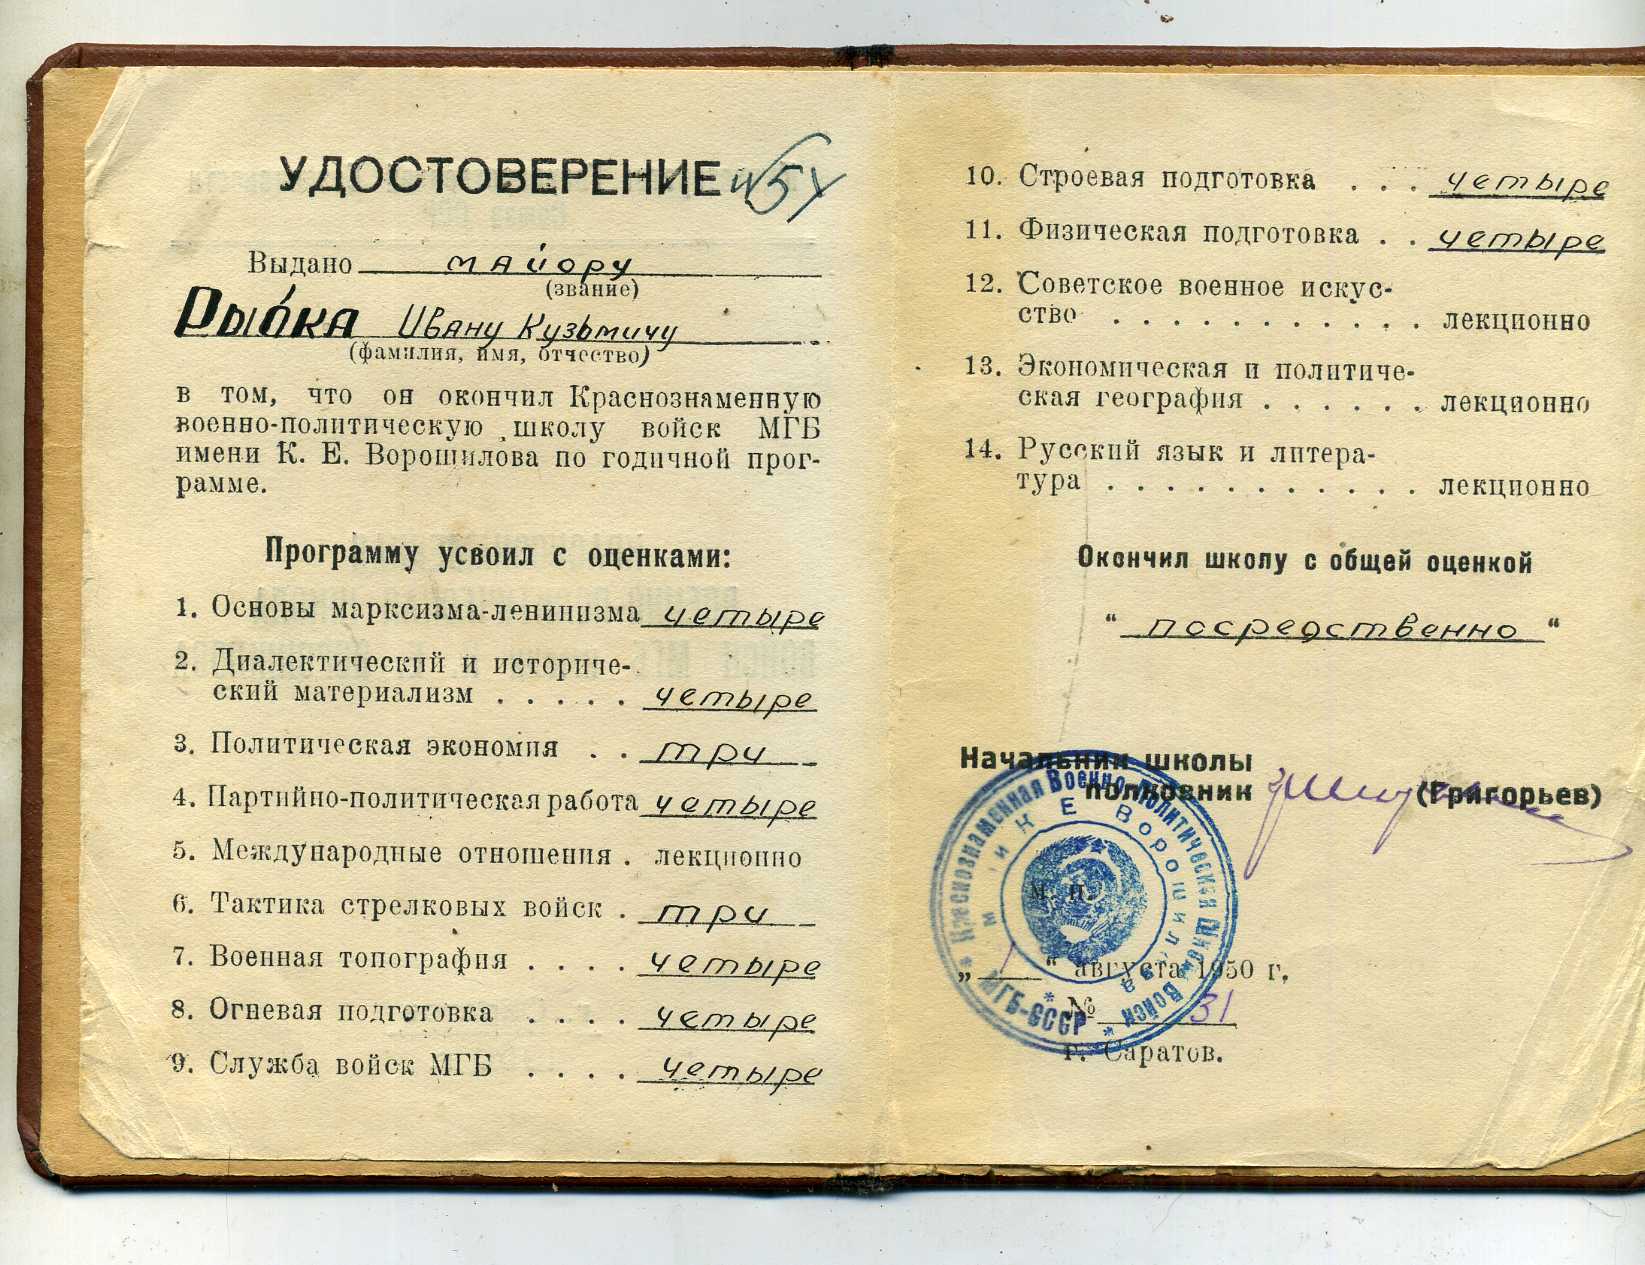 УДОСТОВЕРЕНИЕ
Выдано майору
(звание)
Рыбка Ивану Кузьмичу
(фамилия, имя, отчество)
в том, что он окончил Краснознаменную
военно-политическую школу войск МГБ
имени К. Е. Ворошилова по годичной прог-
рамме.
Программу усвоил с оценками:
1. Основы марксизма-ленинизма четыре
2. Диалектический и историче-
ский материализм . . . . . четыре
3. Политическая экономия . . три
4. Партийно-политическая работа четыре
5. Международные отношения . лекционно
6. Тактика стрелковых войск . три
7. Военная топография . . . . четыре
8. Огневая подготовка . . . . четыре
9. Служба войск МГБ . . . . четыре
10. Строевая подготовка . . . четыре
11. Физическая подготовка . . четыре
12. Советское военное искус-
ство . . . . . . . . . . . лекционно
13. Экономическая и политиче-
ская география . . . . . . лекционно
14. Русский язык и литера-
тура . . . . . . . . . . . лекционно
Окончил школу с общей оценкой
“ посредственно “
Начальник школы
полковник (Григорьев)
Краснознаменная Военно-Политическая Школа Войск МГБ-СССР
им К Е Ворошилова
м. п.
„ “ августа 1950 г.
№ 31
г. Саратов.